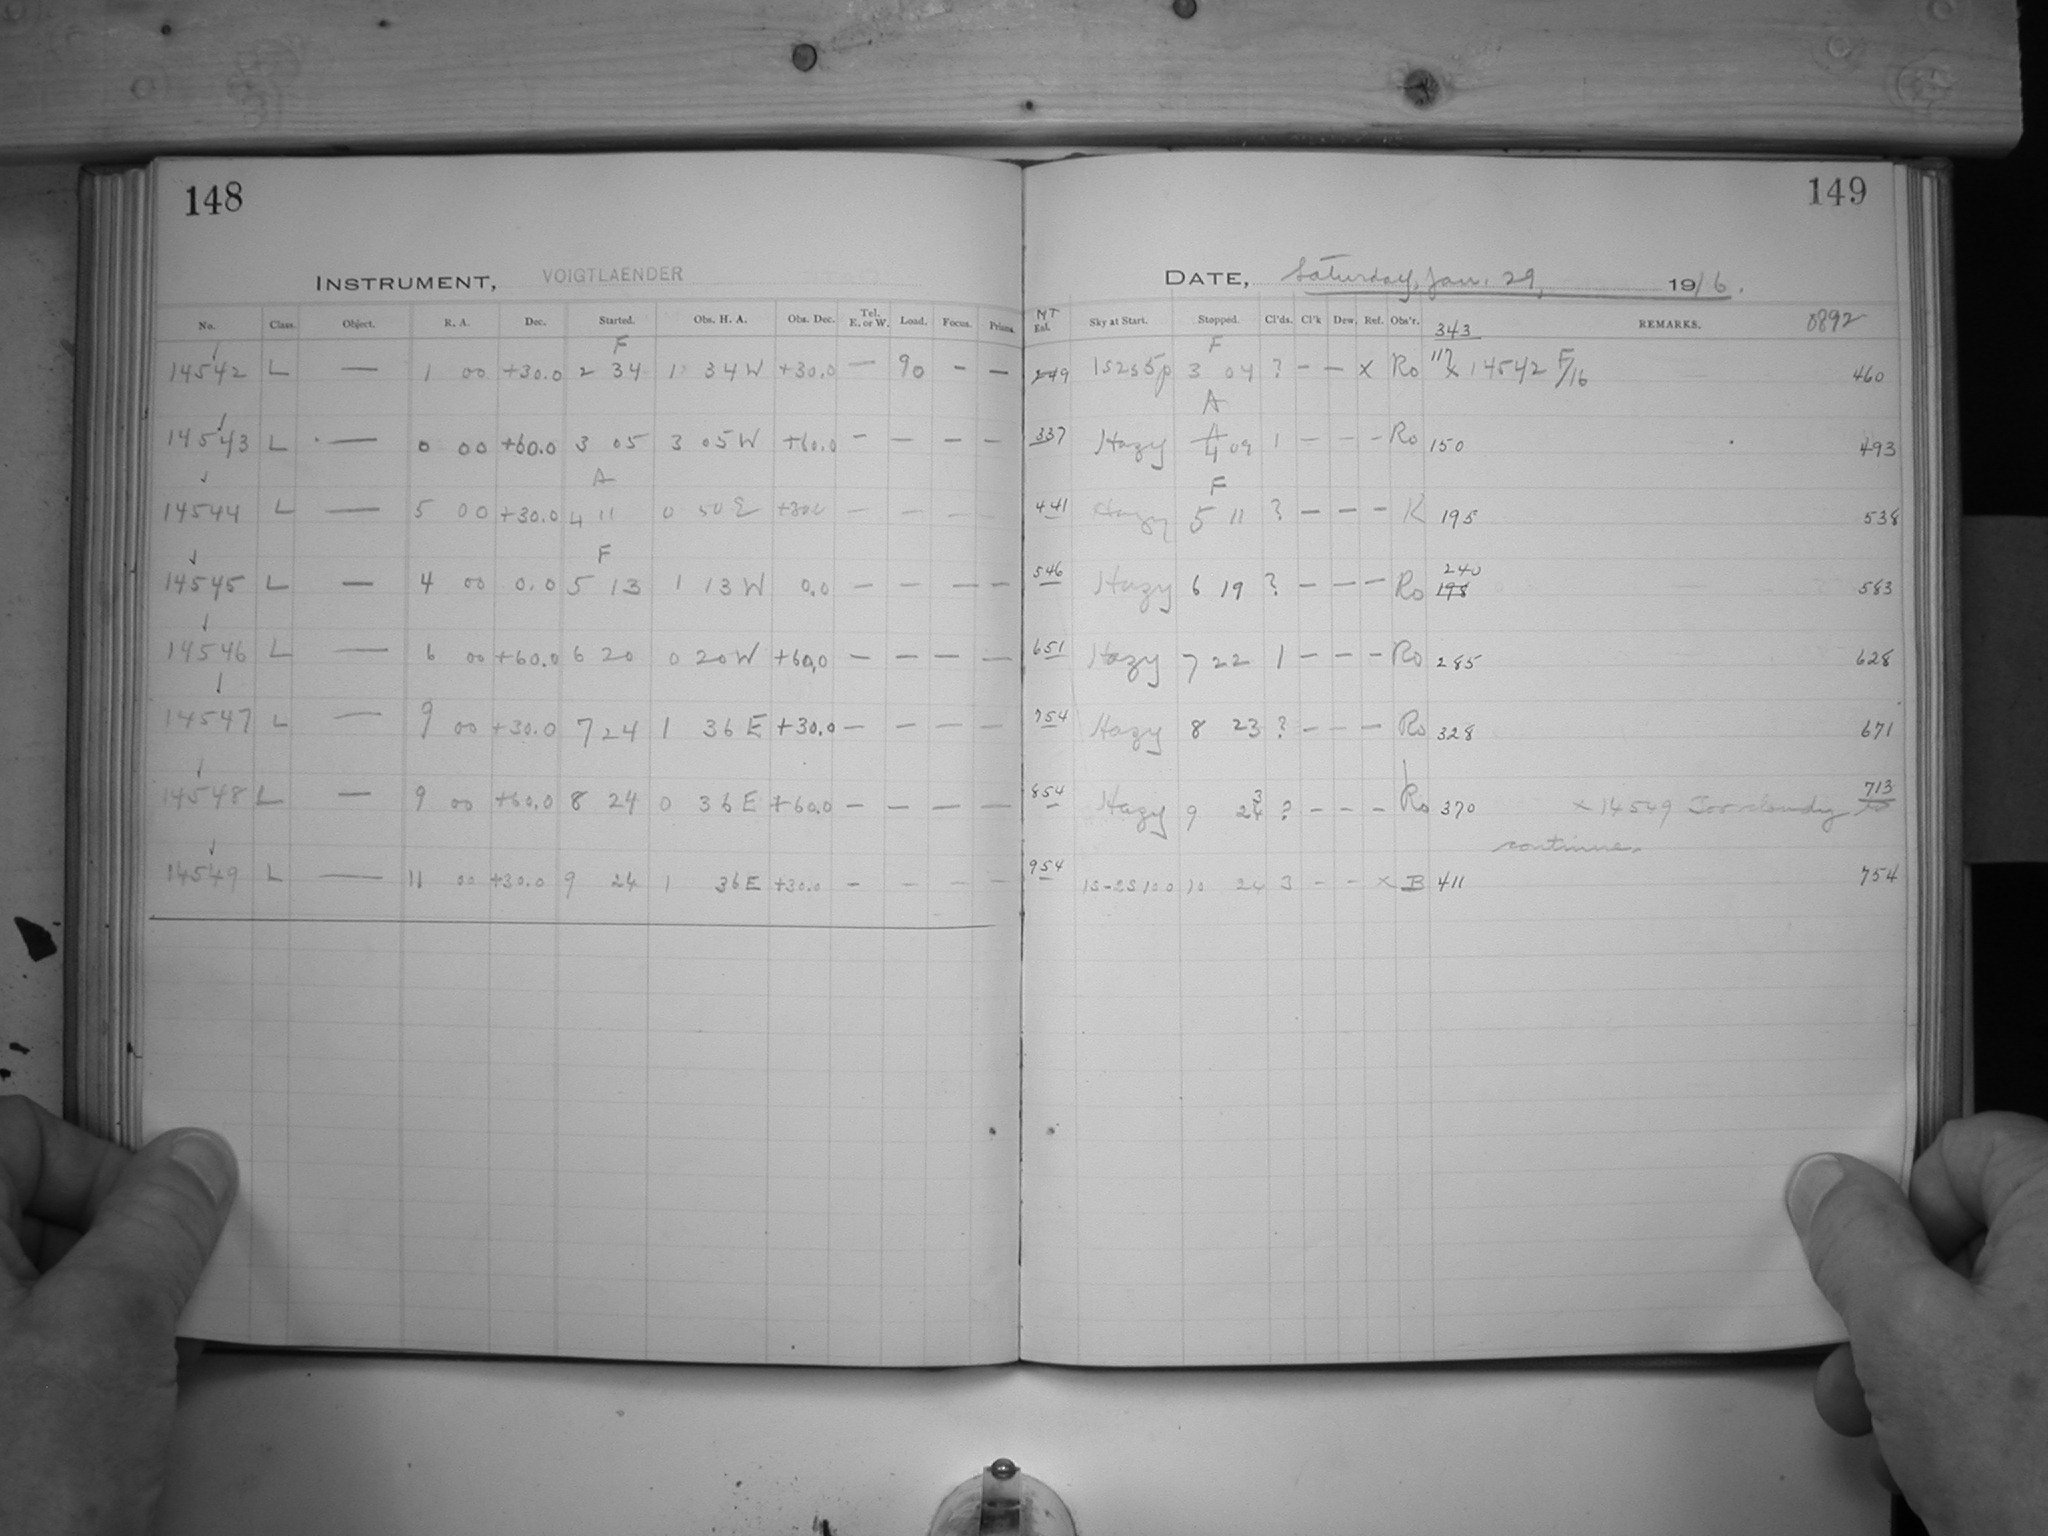 148
149
INSTRUMENT, VOIGTLAENDER
DATE, Saturday, Jan. 29, 1916.
No. Class. Object. R. A. Dec. Started. Obs. H. A. Obs. Dec. Tel. E. or W. Load. Focus. Prisms. MT Exl. Sky at Start. Stopped. Cl'ds. Cl'k Dew. Ref. Obs'r. 343 REMARKS. 0892
F F
14542 L — 1 00 +30.0 2 34 1 34 W +30.0 — 90 - — 249 1s2s5p 3 04 ? - — x Ro 117 x 14542 F/16 460
A
14543 L — 0 00 +60.0 3 05 3 05 W +60.0 - — — — 337 Hazy 4 09 1 - - - Ro 150 493
A F
14544 L — 5 00 +30.0 4 11 0 50 E +30.0 — - — 441 Hazy 5 11 ? - - - R 195 538
F 240
14545 L — 4 00 0.0 5 13 1 13 W 0.0 — — — — 546 Hazy 6 19 ? - — — Ro 198 583
14546 L — 6 00 +60.0 6 20 0 20 W +60.0 — — — — 651 Hazy 7 22 1 - - - Ro 285 628
14547 L — 9 00 +30.0 7 24 1 36 E +30.0 — — — — 754 Hazy 8 23 ? - - - Ro 328 671
14548 L — 9 00 +60.0 8 24 0 36 E +60.0 — — — — 854 Hazy 9 24 3 ? - - - Ro 370 x 14549 Too cloudy to 713
continue.
14549 L — 11 00 +30.0 9 24 1 36 E +30.0 - - - - 954 1S-2S100 10 24 3 - - x B 411 754